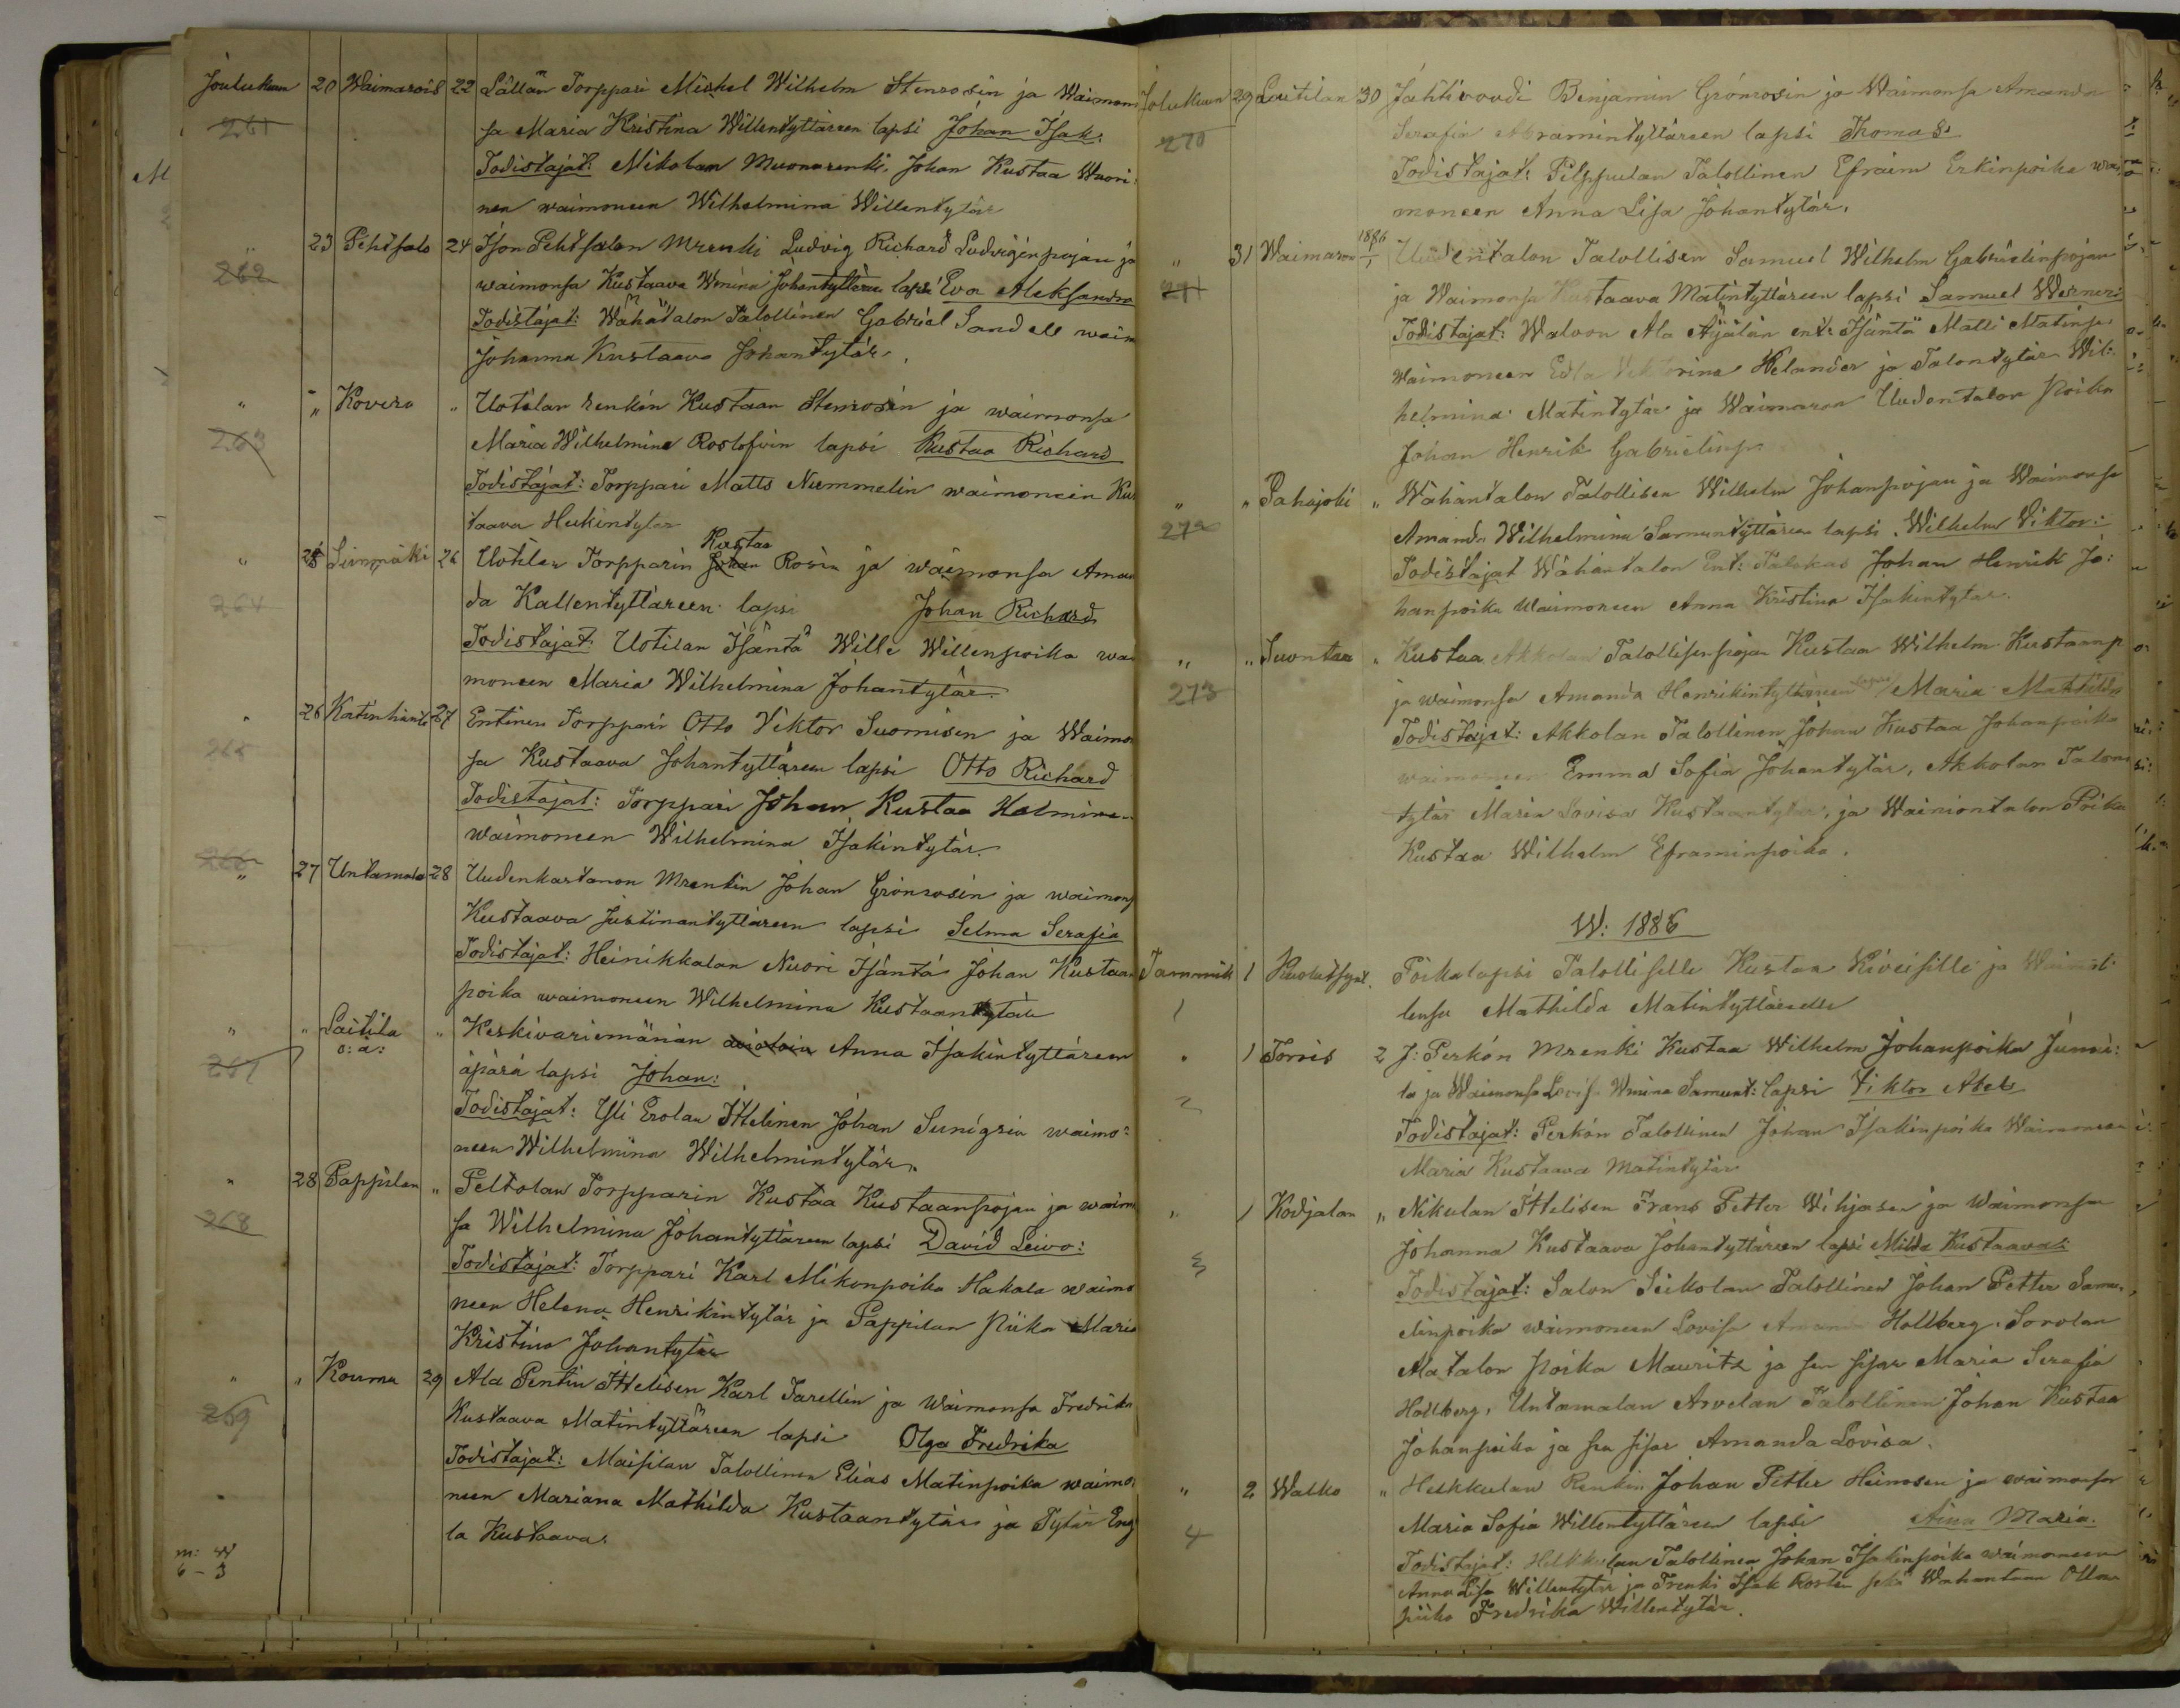 Joulukuun 20 Waimarois 22 Lällän Torppari Mickel Wilhelm Stenrosin ja Waimon
261 sa Maria Kristina Willentyttären lapsi Johan Isak:
Todistajat: Nikolaan Muonarenki Johan Kustaa Wuori:
nen waimoneen Wilhelmina Willentytär
" 23 Pehtsalo 24 Ison Pehtsalon Mrenki Ludvig Richard Ludviginpojan ja
262 waimonsa Kustaava Wmina Johantyttären lapsi Eva Aleksandra
Todistajat: Wähätalon Talollinen Gabriel Sandell waim
Johanna Kustaava Johantytär.
" " Kovero " Uotilan renkin Kustaan Stenrosin ja waimonsa
263 Maria Wilhelmina Rostofvin lapsi Kustaa Richard
Todistajat: Torppari Matts Nummelin waimoneen Kus
taava Heikintytär
" 25 Sinnmäki 26 Uotilan Torpparin Johan Kustaa Rosin ja waimonsa Aman
264 da Kallentyttäreen lapsi Johan Richard
Todistajat: Uotilan Isäntä Wille Willenpoika wai
moneen Maria Wilhelmina Johantytär.
" 26 Katinhänta 27 Entinen Torppari Otto Viktor Suomisen ja Waimon
265 sa Kustaava Johantyttären lapsi Otto Richard
Todistajat: Torppari Johan Kustaa Helmine
waimoneen Wilhelmina Isakintytär.
266
" 27 Untamala 28 Uudenkartanon Mrenkin Johan Grönrosin ja waimons
Kustaava Justinantyttären lapsi Selma Serafia
Todistajat: Heinikkalan Nuori Isäntä Johan Kustaan
poika waimoneen Wilhelmina Kustaantytär
" " Laitila o: ä: " Keskivariemännän Anna Isakintyttären
267 äpärä lapsi Johan:
Todistajat: Yli Erolan Ittelinen Johan Sunigrin waimo:
neen Wilhelmina Wilhelmintytär.
" 28 Pappilan " Peltolan Torpparin Kustaa Kustaanpojan ja waimo
268 sa Wilhelmina Johantyttären lapsi David Leivo:
Todistajat: Torppari Karl Mikonpoika Hakala waimo
neen Helena Henrikintytär ja Pappilan Piika Maria
Kristina Johantytär
" " Kouma 29 Ala Pentin Ittelisen Karl Tarellin ja Waimonsa Fredrika
269 Kustaava Matintyttäreen lapsi Olga Fredrika
Todistajat: Maisilan Talollinen Elias Matinpoika waimo:
neen Mariana Mathilda Kustaantytär ja Tytär Eng
la Kustaava.
m: w
6 - 3
Joulukuun 29 Laitilan 30 Jahtivoudi Benjamin Grönrosin ja Waimonsa Amanda
270 Serafia Abramintyttäreen lapsi Thomas.
Todistajat: Pilppulan Talollinen Efraim Erkinpoika wai
moneen Anna Lisa Johantytär.
" 31 Waimaron 1886 1/1 Uudentalon Talollisen Samuel Wilhelm Gabrielinpojan
271 ja Waimonsa Kustaava Matintyttäreen lapsi Samuel Werneri
Todistajat: Walvon Ala Äijälän ent: Isäntä Matti Matinp:
Waimoneen Edla Vektorina Helander ja Talontytär Wil:
helmina Matintytär ja Waimaron Uudentalon Poika
Johan Henrik Gabrielinp.
" " Pahajoki " Wähäntalon Talollisen Wilhelm Johanpojan ja Waimonsa
272 Amanda Wilhelmina Samuntyttären lapsi Wilhelm Viktor:
Todistajat Wähäntalon Ent: Talokas Johan Henrik Jo:
hanpoika Waimoneen Anna Kristina Isakintytär.
" " Suontaa " Kustaa Akkolan Talollisenpojan Kustaa Wilhelm Kustaanp
273 ja waimonsa Amanda Henrikintyttäreen lapsi Maria Mathilda
Todistajat: Akkolan Talollinen Johan Kustaa Johanpoika
waimoneen Emma Sofia Johantytär, Akkolan Talon
tytär Maria Lovisa Kustaantytär, ja Wainiontalon Poika
Kustaa Wilhelm Eframinpoika.
W: 1886
Tammiik 1 Poikalapsi Talolliselle Kustaa Kiveisille ja Waimol:
1 lensa Mathilda Matintyttärelle
" 1 Torris 2 J: Perkön Mrenki Kustaa Wilhelm Johanpoika Junni:
2 la ja Waimonsa Lovisa Wmina Samunt: lapsi Viktor Abel
Todistajat: Perkön Talollinen Johan Isakinpoika Waimoneen
Maria Kustaava Matintytär
" 1 Kodjalan " Nikulan Ittelisen Frans Petter Wihjasen ja Waimonsa
3 Johanna Kustaava Johantyttären lapsi Milda Kustaava:
Todistajat: Salon Seikolan Talollinen Johan Petter Samu:
elinpoika waimoneen Lovisa Amanda Hollberg, Sorolan
Alatalon poika Mauritz ja sen sisar Maria Serafia
Hollberg, Untamalan Arvelan Talollinen Johan Kustaa
Johanpoika ja sen sisar Amanda Lovisa.
" 2 Walko " Heikkulan Renkin Johan Petter Heinosen ja waimonsa
4 Maria Sofia Willentyttären lapsi Aina Maria.
Todistajat: Heikkulan Talollinen Johan Isakinpoika waimoneen
Anna Lisa Willentytär ja Trenki Isak Rostin sekä Wahantaan Ollan
piika Fredrika Willentytär.